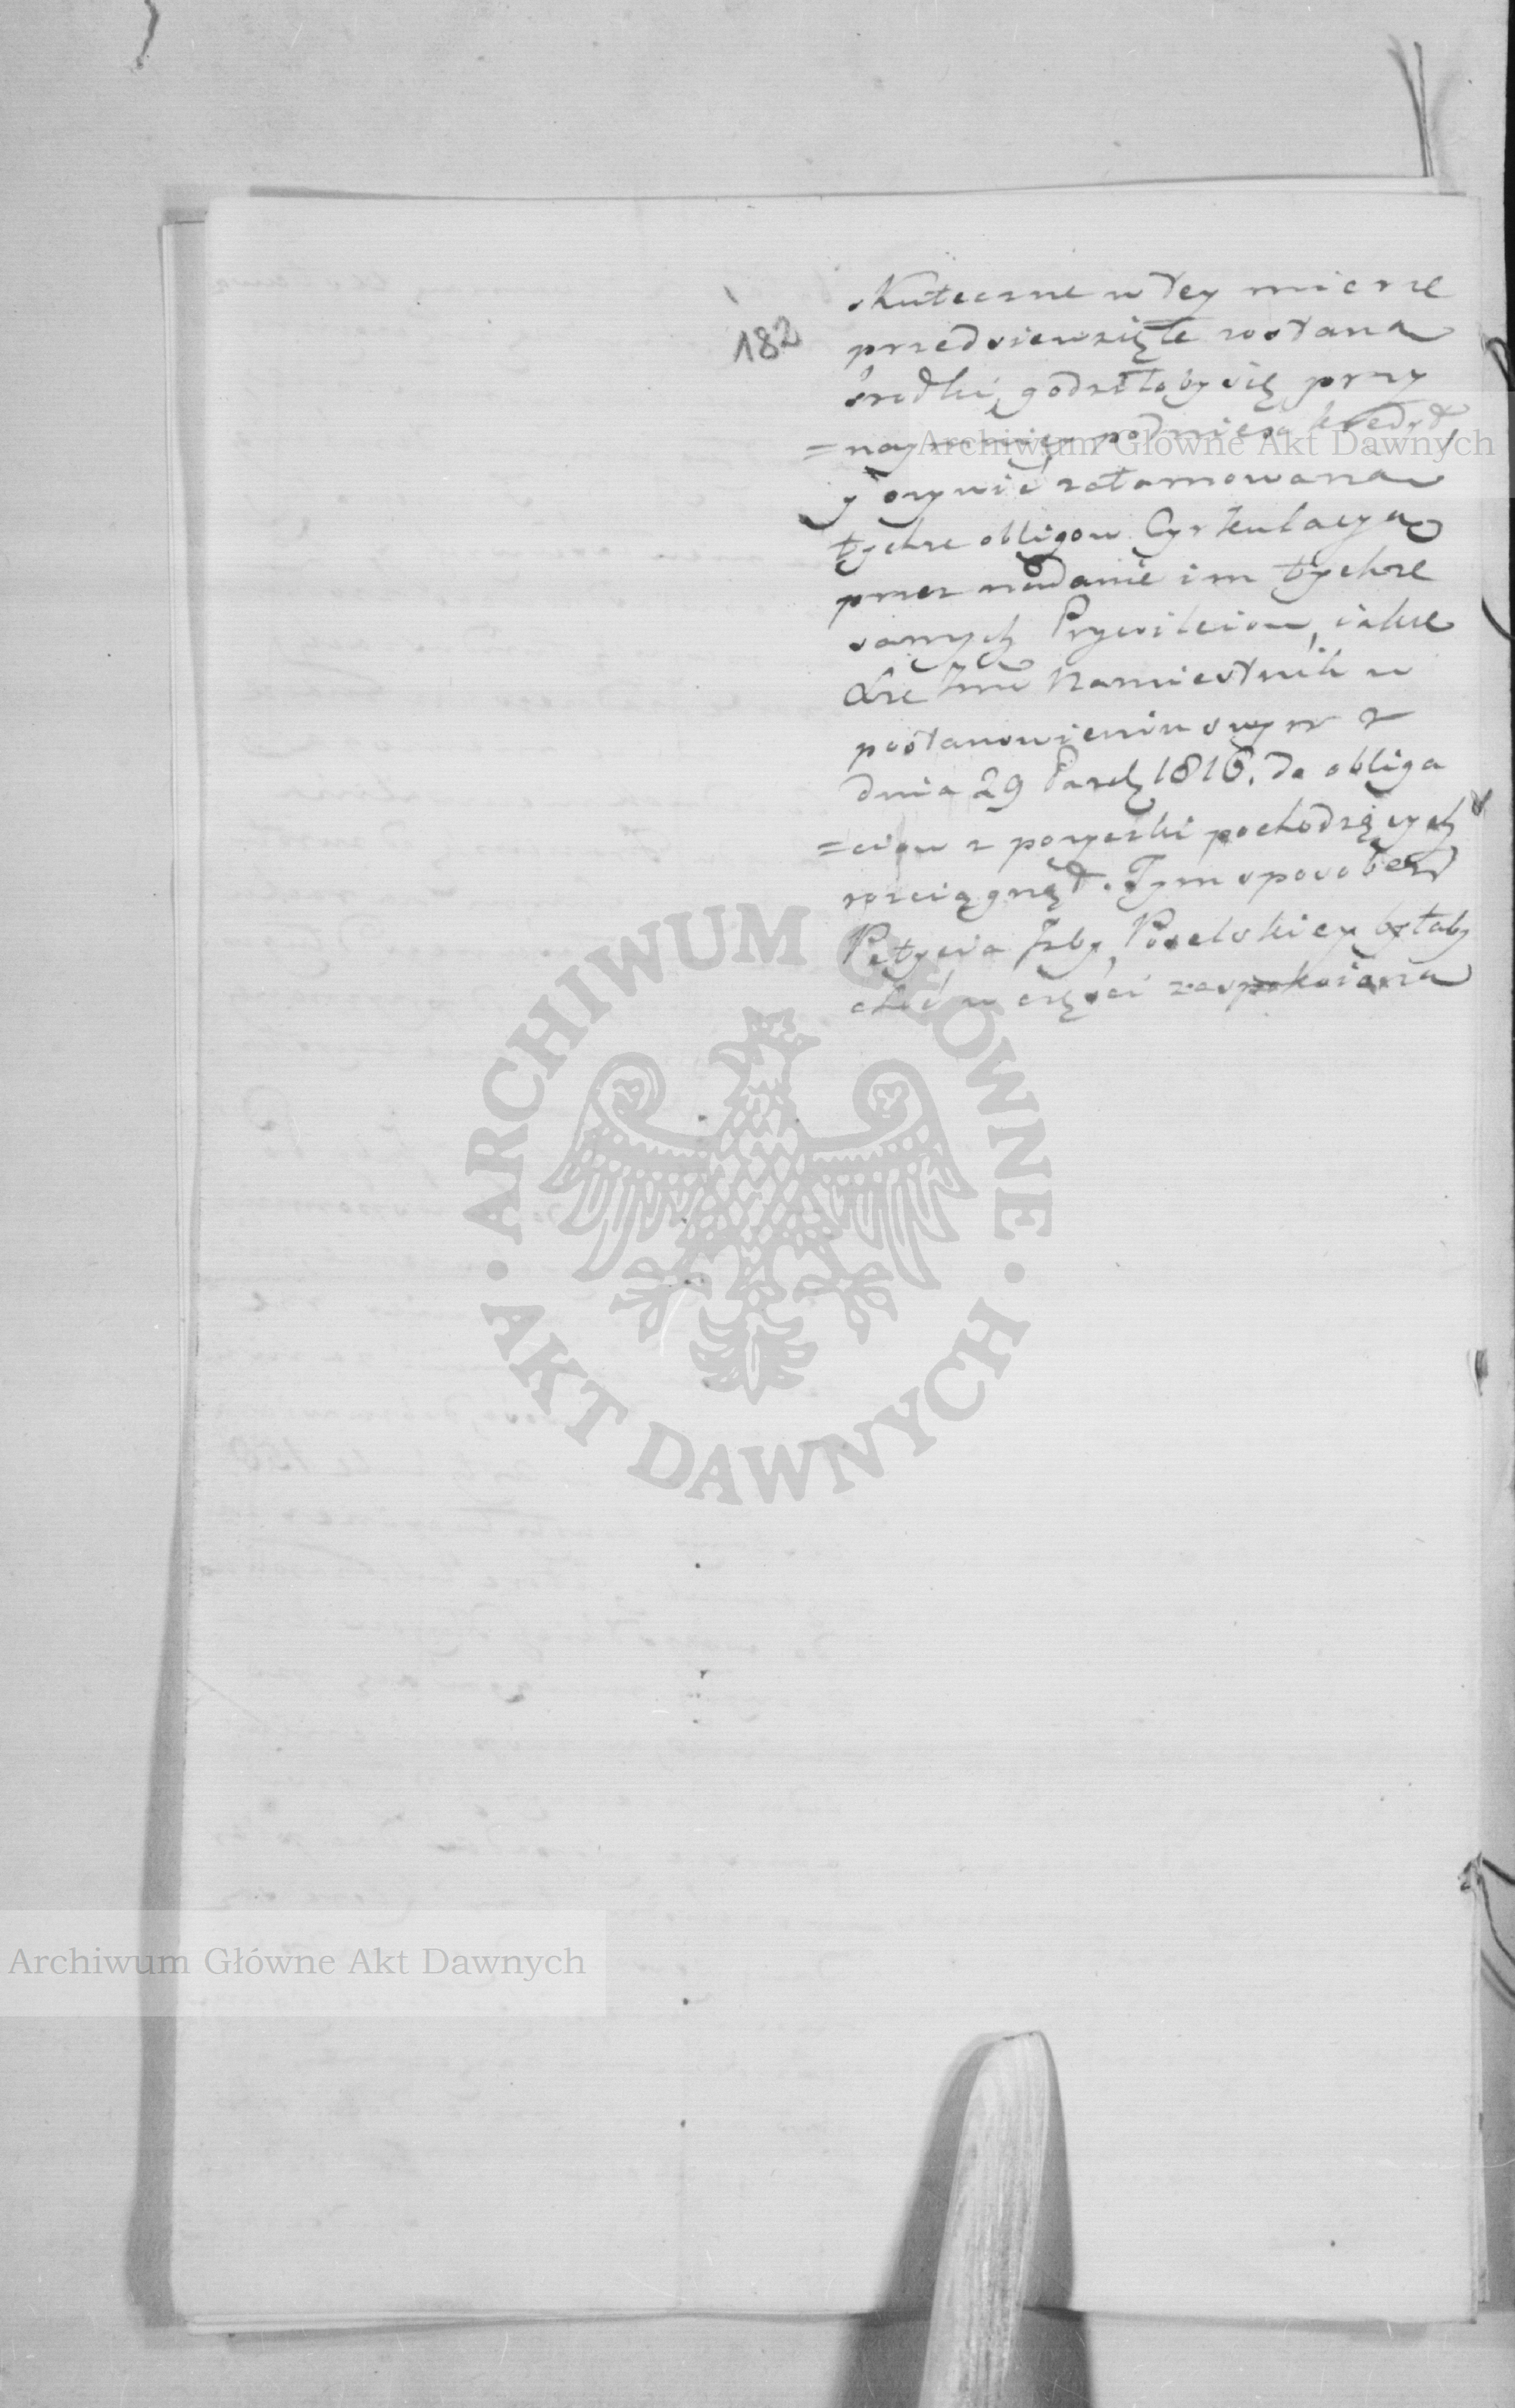 182
skuteczne w tey mierze
przedsiewzięte zostaną
środki, godziłoby się przy
=naymniey podnieść kredyt
y ożywić zatamowaną
tychże obligow Cyrkulacyą
przez nadanie im tychże
samych Przywileiow, iakie
Xże Jmć Namiestnik w
postanowieniu swym z
dnia 29 Paźdz 1816. do obliga
=ciow z pożyczki pochodzących
rozciągnął. Tym sposobem
Petycia Izby Poselskiey byłaby
choć w części zaspokoiona
Archiwum Główne Akt Dawnych
ARCHIWUM GŁÓWNE · AKT DAWNYCH ·
Archiwum Główne Akt Dawnych